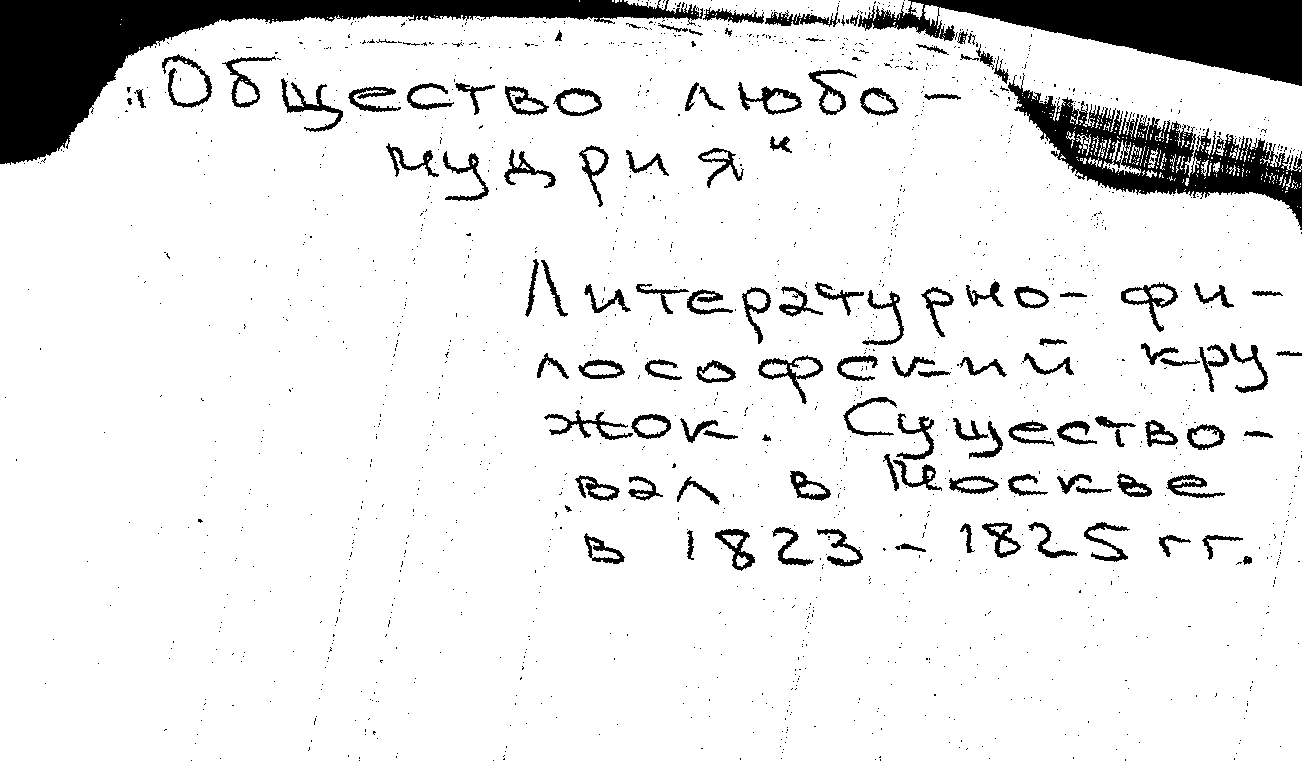 „Общество любо-
мудрия“
Литературно-фи-
лософский кру-
жок. Существо-
вал в Москве
в 1823 - 1825 гг.